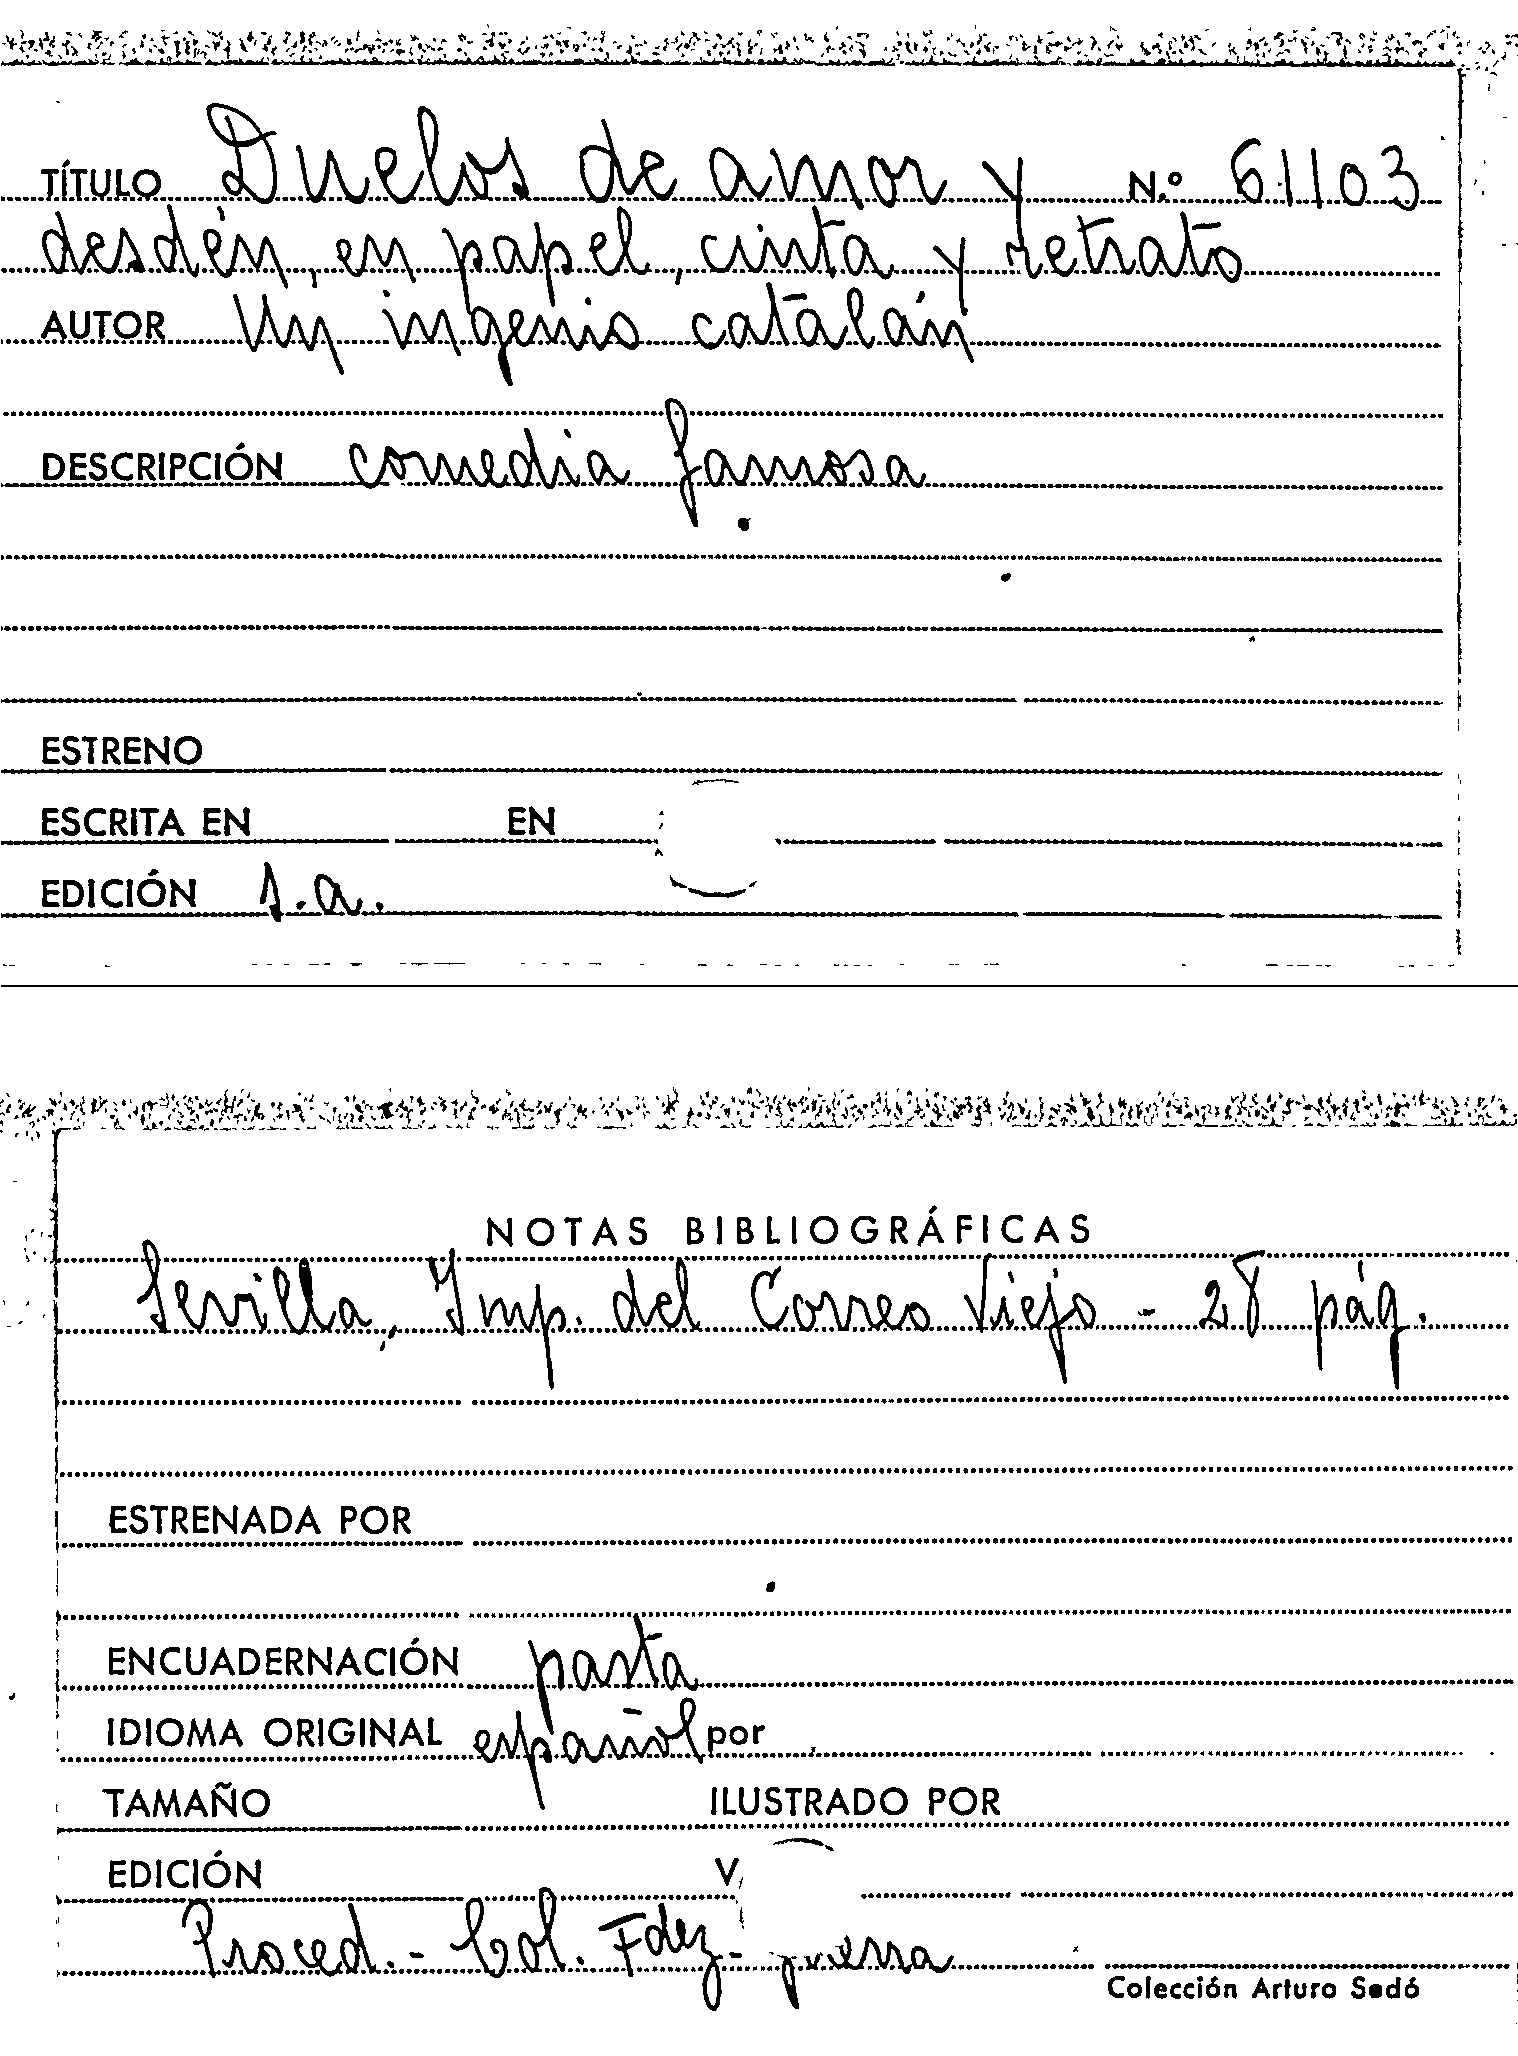 TÍTULO Duelos de amor y N.º 61103
desdén, en papel, cinta y retrato
AUTOR Un ingenio catalán
DESCRIPCIÓN comedia famosa
ESTRENO
ESCRITA EN EN
EDICIÓN s.a.
NOTAS BIBLIOGRÁFICAS
Sevilla, Imp. del Correo Viejo - 28 pág.
ESTRENADA POR
ENCUADERNACIÓN pasta
IDIOMA ORIGINAL español por
TAMAÑO ILUSTRADO POR
EDICIÓN V
Proced. - Col. Fdez-guerra
Colección Arturo Sedó